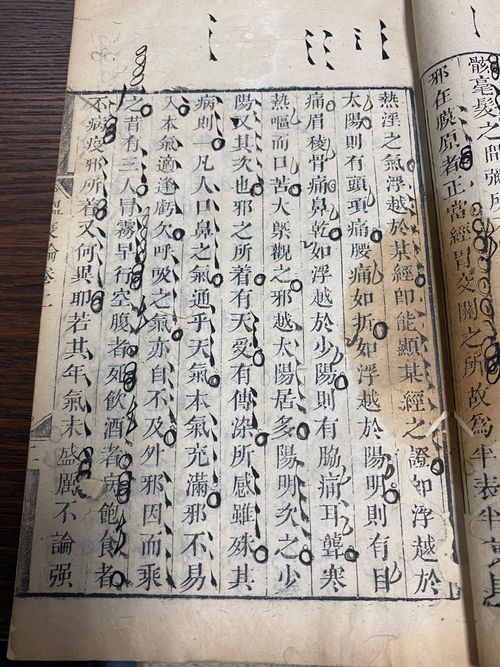 骸毫髮之間彌
邪在膜原者正當經胃交關之所故為半表半裏其
熱淫之氣浮越於某經即能顯某經之證如浮越於
太陽則有頭項痛腰痛如折如浮越於陽明則有目
痛眉稜骨痛鼻乾如浮越於少陽則有脇痛耳聾寒
熱嘔而口苦大槩觀之邪越太陽居多陽明次之少
陽又其次也邪之所着有天受有傳染所感雖殊其
病則一凡人口鼻之氣通乎天氣本氣充滿邪不易
入本氣適逢虧欠呼吸之氣亦自不及外邪因而乘
之昔有三人冒霧早行空腹者死飲酒者病飽食者
不病疫邪所着又何異耶若其年氣來盛厲不論強
疫論卷